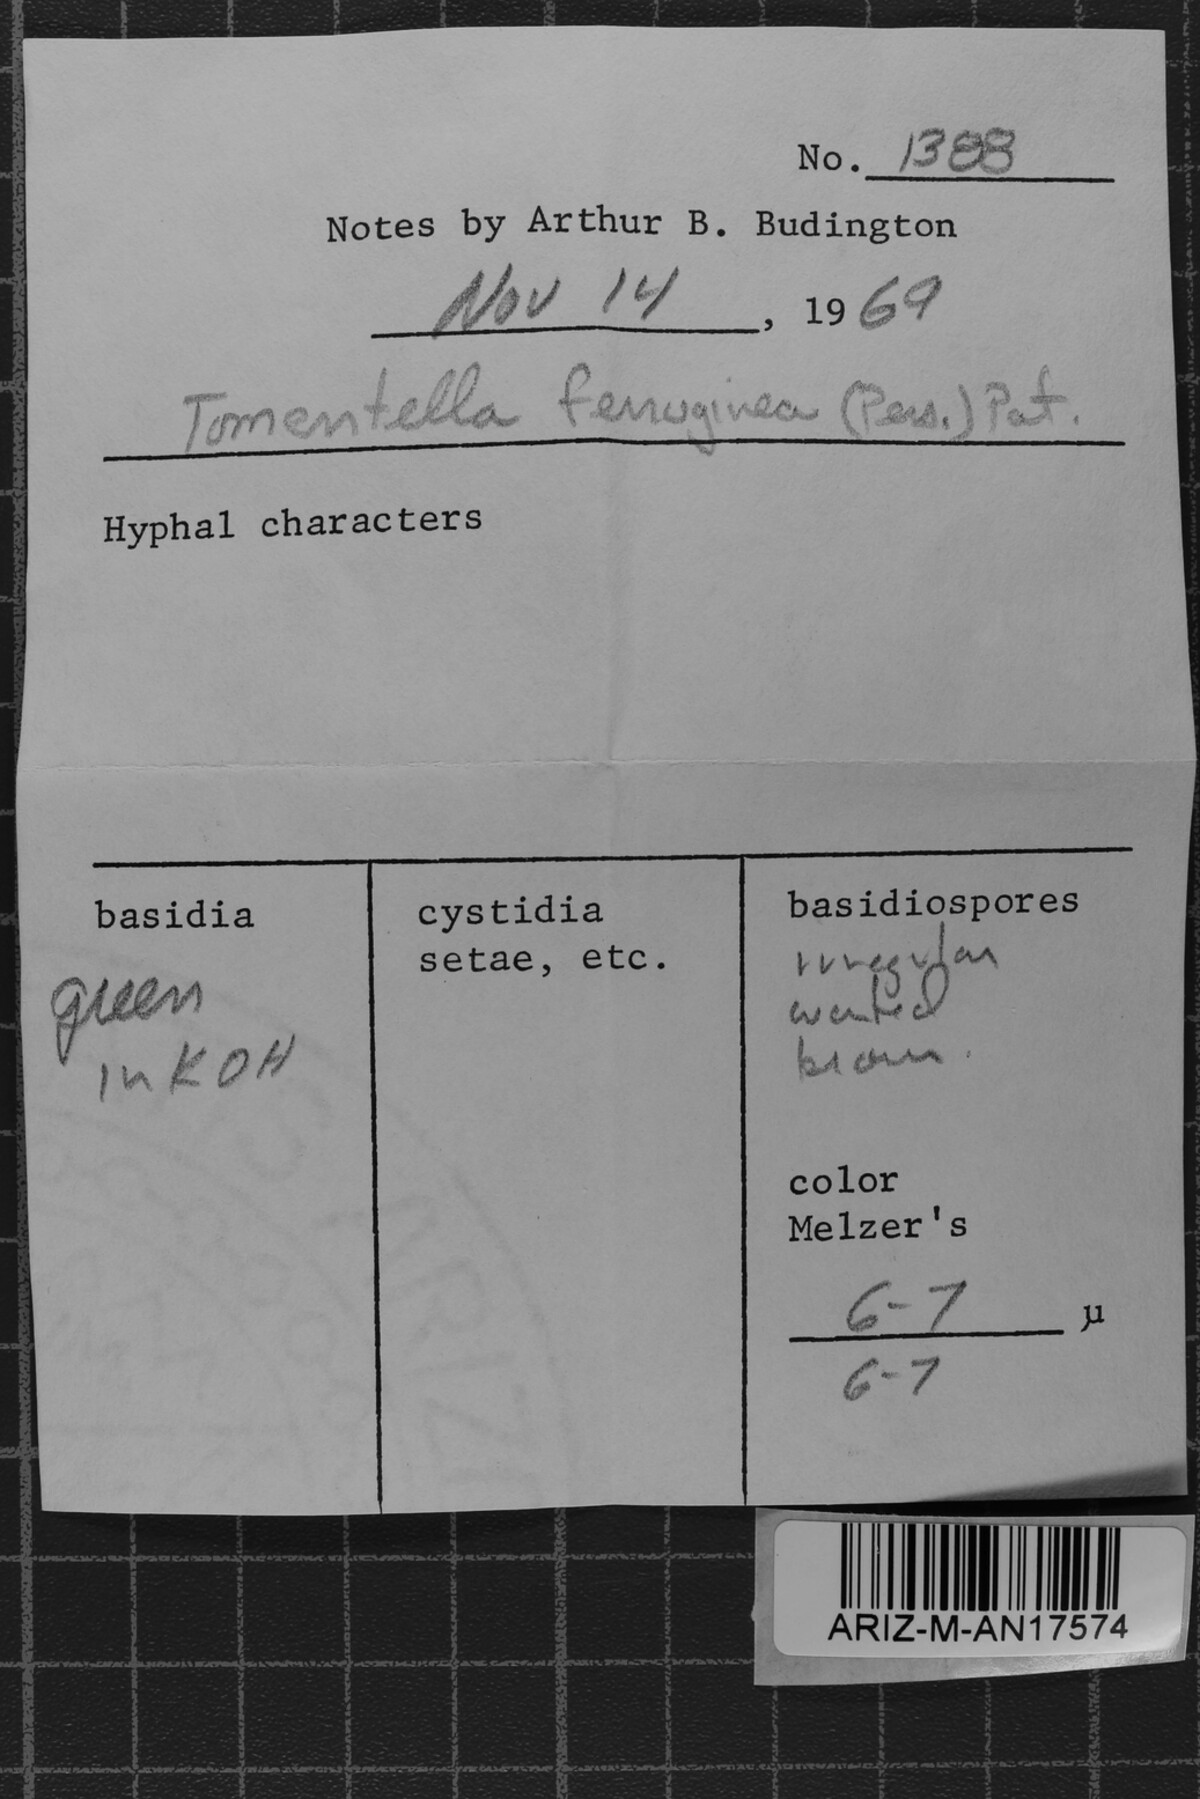 No. 1388
Notes by Arthur B. Budington
Nov 14, 1969
Tomentella ferruginea (Pers.) Pat.
Hyphal characters
basidia
green
in KOH
cystidia
setae, etc.
basidiospores
irregular
brown.
color
Melzer's
6-7 µ
6-7
ARIZ-M-AN17574